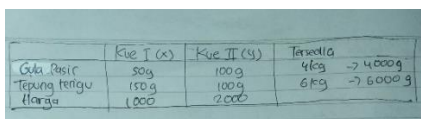 Kue I (x) Kue II (y) Tersedia
Gula Pasir 50g 100g 4kg -> 4000g
Tepung terigu 150g 100g 6kg -> 6000g
Harga 1000 2000